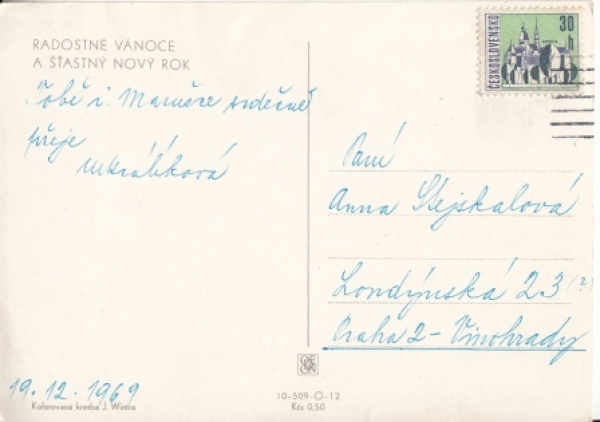 RADOSTNÉ VÁNOCE
A ŠŤASTNÝ NOVÝ ROK
Tobě i Marušce srdečně
přeje
Mkrálíková
19.12.1969
Kolorovaná kresba J. Wintra
ČESKOSLOVENSKO
30
Paní
Anna Stejskalová
Londýnská 23 (?)
Praha 2 - Vinohrady
10-509-O-12
Kčs 0,50